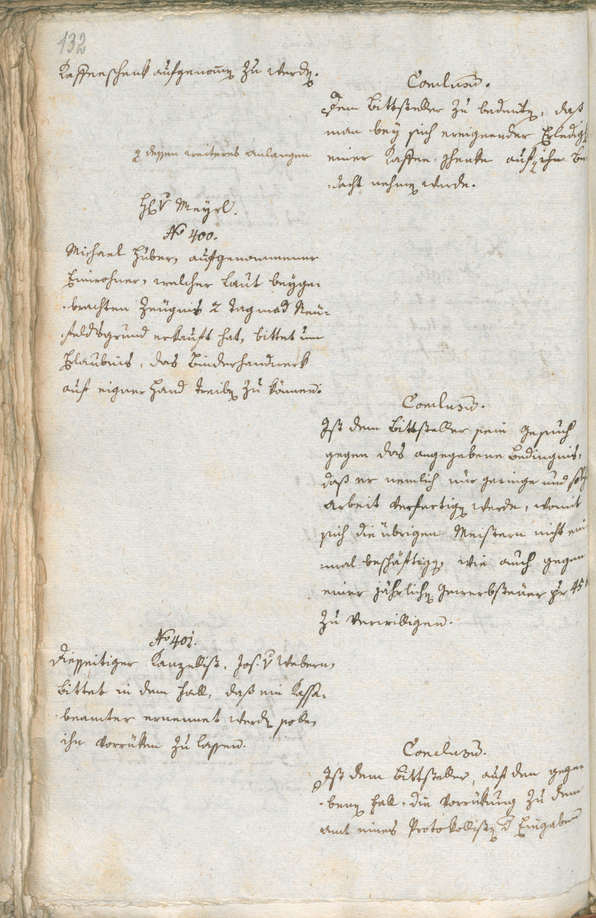 132
Kaffeeschenk aufgenom̄en zu werden.
Conclusum.
Dem Bittsteller zu bedeuten, daß
man bey sich ereignender Erledig
einer Kaffee schenke auf ihn Be
dacht nehmen werde.
dessen weiteres anlangen
H. v Meyrl.
No 400.
Michael Huber, aufgenommener
Einwohner, welcher laut beyge-
brachten Zeugniß 2 Tagmad Neu-
feldsgrund erkauft hat, bittet um
Erlaubnis, das Binderhandwerk
auf eigner Hand treiben zu können.
Conclusum.
Ist dem Bittsteller sein Gesuch
gegen das angegebene Bedingnis,
daß er nemlich nur geringe und
arbeit verfertigen werde, womit
sich die übrigen Meistern nicht ein
mal beschäftigen, wie auch gegen
einer jährlichen Gewerbsteuer pr 45
zu verwilligen.
No 401.
Diesseitiger Kanzellist, Jos. v Webern,
bittet in dem Fall, daß ein Kassa-
beamter ernennet werden sollte,
ihn vorrüken zu lassen.
Conclusum.
Ist dem Bittsteller, auf den gege-
benen Fall, die Vorrükung zu dem
amt eines Protokollisten d Eingaben